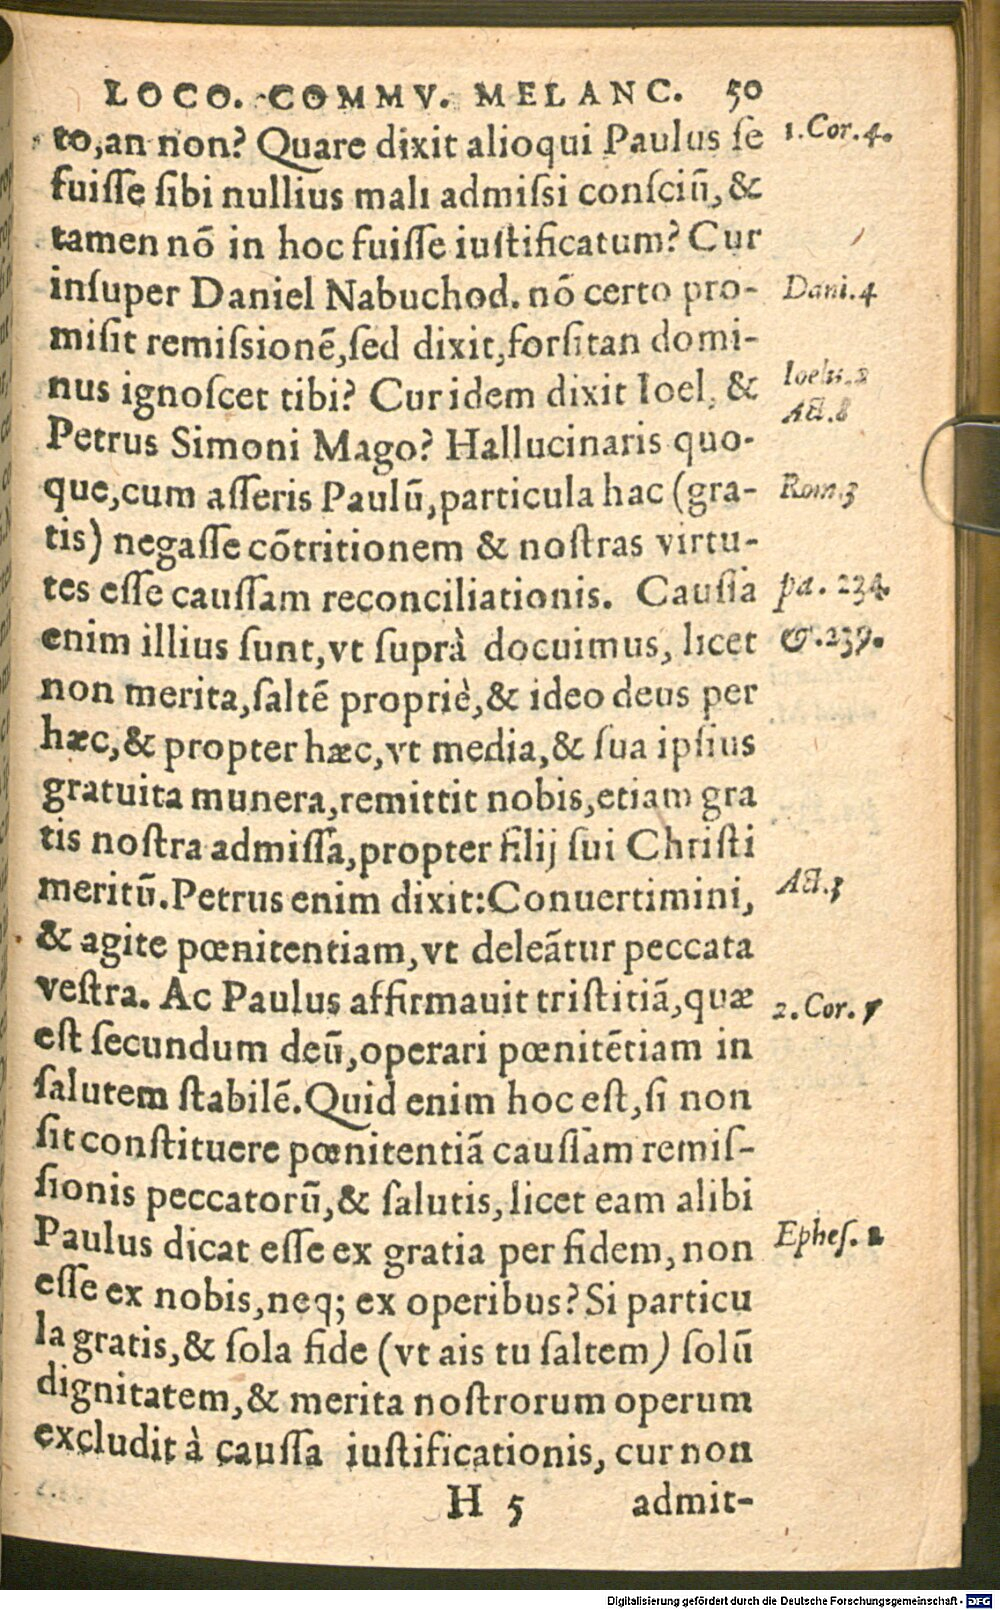 LOCO. COMMV. MELANC. 50
to,an non? Quare dixit alioqui Paulus ſe 1.Cor.4.
fuiſſe ſibi nullius mali admiſsi conſciũ,&
tamen nõ in hoc fuiſſe iuſtificatum? Cur
inſuper Daniel Nabuchod. nõ certo pro- Dani.4
miſit remiſsionẽ,ſed dixit,forſitan domi-
nus ignoſcet tibi? Cur idem dixit Ioel, & Ioelis.2
Petrus Simoni Mago? Hallucinaris quo- Act.8
que,cum aſſeris Paulũ,particula hac (gra- Rom.3
tis) negaſſe cõtritionem & noſtras virtu-
tes eſſe cauſſam reconciliationis. Cauſſa pa. 234.
enim illius ſunt,vt ſuprà docuimus, licet &.239.
non merita,ſaltẽ propriè,& ideo deus per
hæc,& propter hæc,vt media,& ſua ipſius
gratuita munera,remittit nobis,etiam gra
tis noſtra admiſſa,propter filij ſui Chriſti
meritũ.Petrus enim dixit:Conuertimini, Act.3
& agite pœnitentiam,vt deleãtur peccata
veſtra. Ac Paulus affirmauit triſtitiã,quæ 2.Cor.7
eſt ſecundum deũ,operari pœnitẽtiam in
ſalutem ſtabilẽ.Quid enim hoc eſt,ſi non
ſit conſtituere pœnitentiã cauſſam remiſ-
ſionis peccatorũ,& ſalutis,licet eam alibi
Paulus dicat eſſe ex gratia per fidem,non Epheſ. 2
eſſe ex nobis,neq; ex operibus? Si particu
la gratis,& ſola fide (vt ais tu ſaltem) ſolũ
dignitatem,& merita noſtrorum operum
excludit à cauſſa iuſtificationis, cur non
H 5 admit-
Digitalisierung gefördert durch die Deutsche Forschungsgemeinschaft - DFG